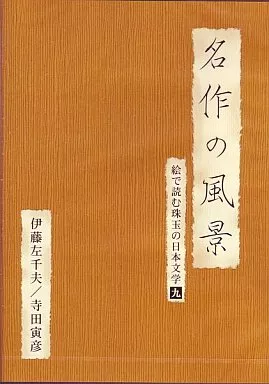 名作の風景
絵で読む珠玉の日本文学 九
伊藤左千夫/寺田寅彦